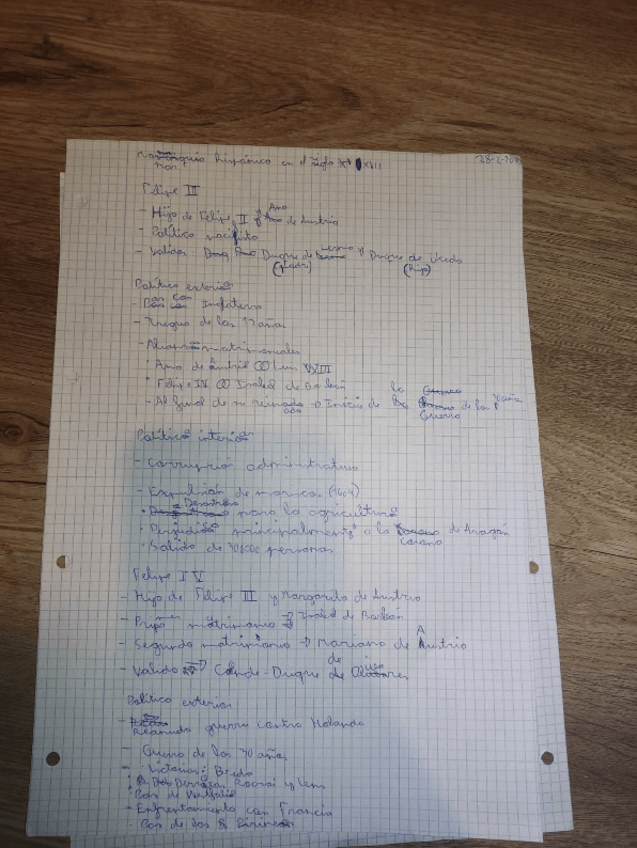 Monarquía hispánica en el siglo XVII
Felipe III
- Hijo de Felipe II y Ana de Austria
- Política pacifista
- Validos: Duque de Lerma y Duque de Uceda
(Padre) (Hijo)
Política exterior
- Paz con Inglaterra
- Tregua de los 12 años
- Alianzas matrimoniales
· Ana de Austria ∞ Luis XIII
· Felipe IV ∞ Isabel de Borbón
- Al final de su reinado → Inicio de la Guerra de los años
Política interior
- Corrupción administrativa
- Expulsión de moriscos (1609)
· Desastroso para la agricultura
· Perjudicó principalmente a la Corona de Aragón
· Salida de personas
Felipe IV
- Hijo de Felipe III y Margarita de Austria
- Primer matrimonio → Isabel de Borbón
- Segundo matrimonio → Mariana de Austria
- Valido → Conde-Duque de Olivares
Política exterior
- Reanuda guerra contra Holanda
- Guerra de los 30 años
- Victorias: Breda
· Derrotas: Rocroi y Lens
· Paz de Westfalia
- Enfrentamiento con Francia
- Paz de los Pirineos